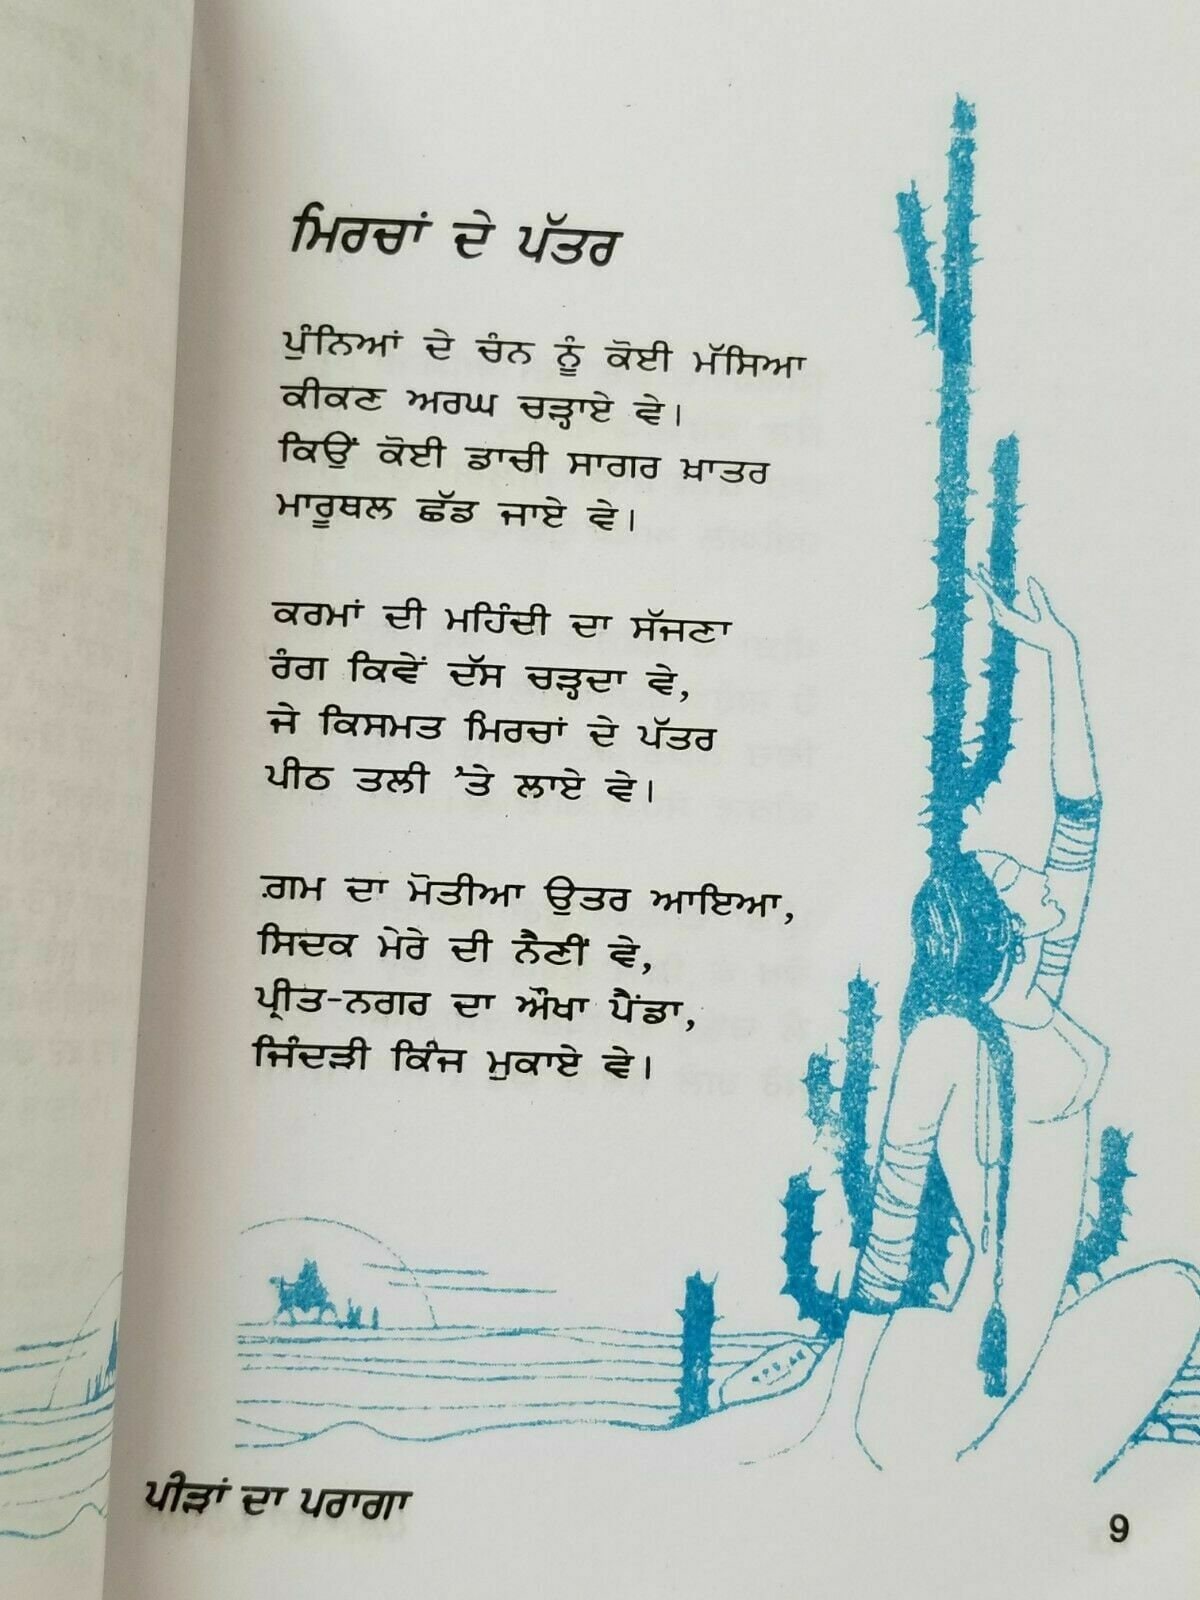 ਮਿਰਚਾਂ ਦੇ ਪੱਤਰ
ਪੁੰਨਿਆਂ ਦੇ ਚੰਨ ਨੂੰ ਕੋਈ ਮੱਸਿਆ
ਕੀਕਣ ਅਰਘ ਚੜ੍ਹਾਏ ਵੇ।
ਕਿਉਂ ਕੋਈ ਡਾਚੀ ਸਾਗਰ ਖ਼ਾਤਰ
ਮਾਰੂਥਲ ਛੱਡ ਜਾਏ ਵੇ।
ਕਰਮਾਂ ਦੀ ਮਹਿੰਦੀ ਦਾ ਸੱਜਣਾ
ਰੰਗ ਕਿਵੇਂ ਦੱਸ ਚੜ੍ਹਦਾ ਵੇ,
ਜੇ ਕਿਸਮਤ ਮਿਰਚਾਂ ਦੇ ਪੱਤਰ
ਪੀਠ ਤਲੀ 'ਤੇ ਲਾਏ ਵੇ।
ਗ਼ਮ ਦਾ ਮੋਤੀਆ ਉਤਰ ਆਇਆ,
ਸਿਦਕ ਮੇਰੇ ਦੀ ਨੈਣੀਂ ਵੇ,
ਪ੍ਰੀਤ-ਨਗਰ ਦਾ ਔਖਾ ਪੈਂਡਾ,
ਜਿੰਦੜੀ ਕਿੰਜ ਮੁਕਾਏ ਵੇ।
ਪੀੜਾਂ ਦਾ ਪਰਾਗਾ
9